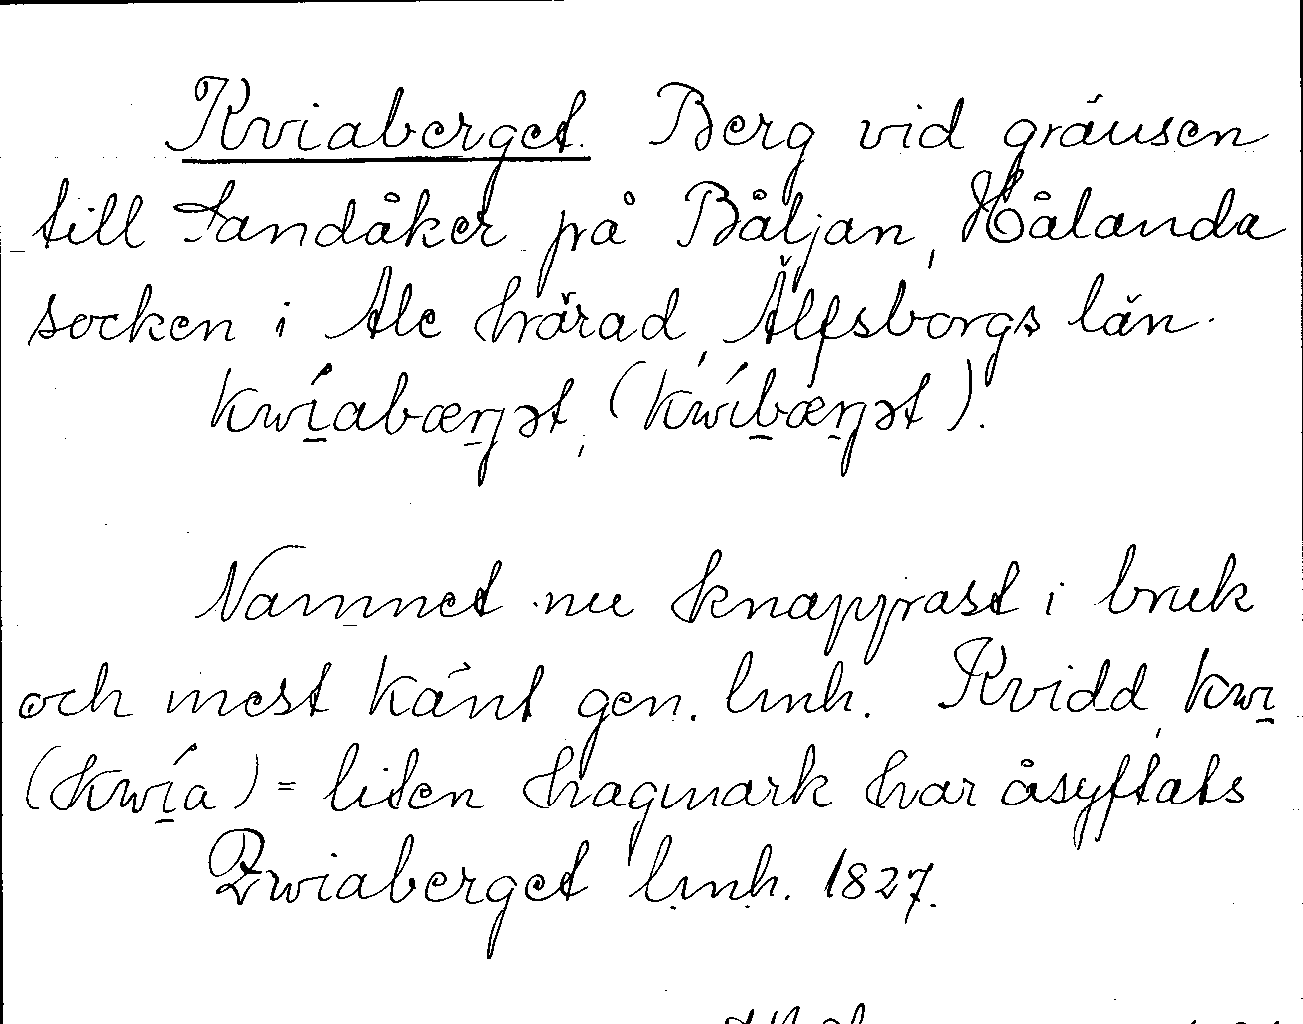 Kviaberget. Berg vid gränsen
till Sandåker på Båljan, Hålanda
socken i Ale härad, Älfsborgs län.
kwí̱abæŋət, (kwíbæŋət).
Namnet nu knappast i bruk
och mest känt gen. lmh. Kvidd, kwi̱
(kwí̱a) = liten hagmark har åsyftats
Qwiaberget lmh. 1827.